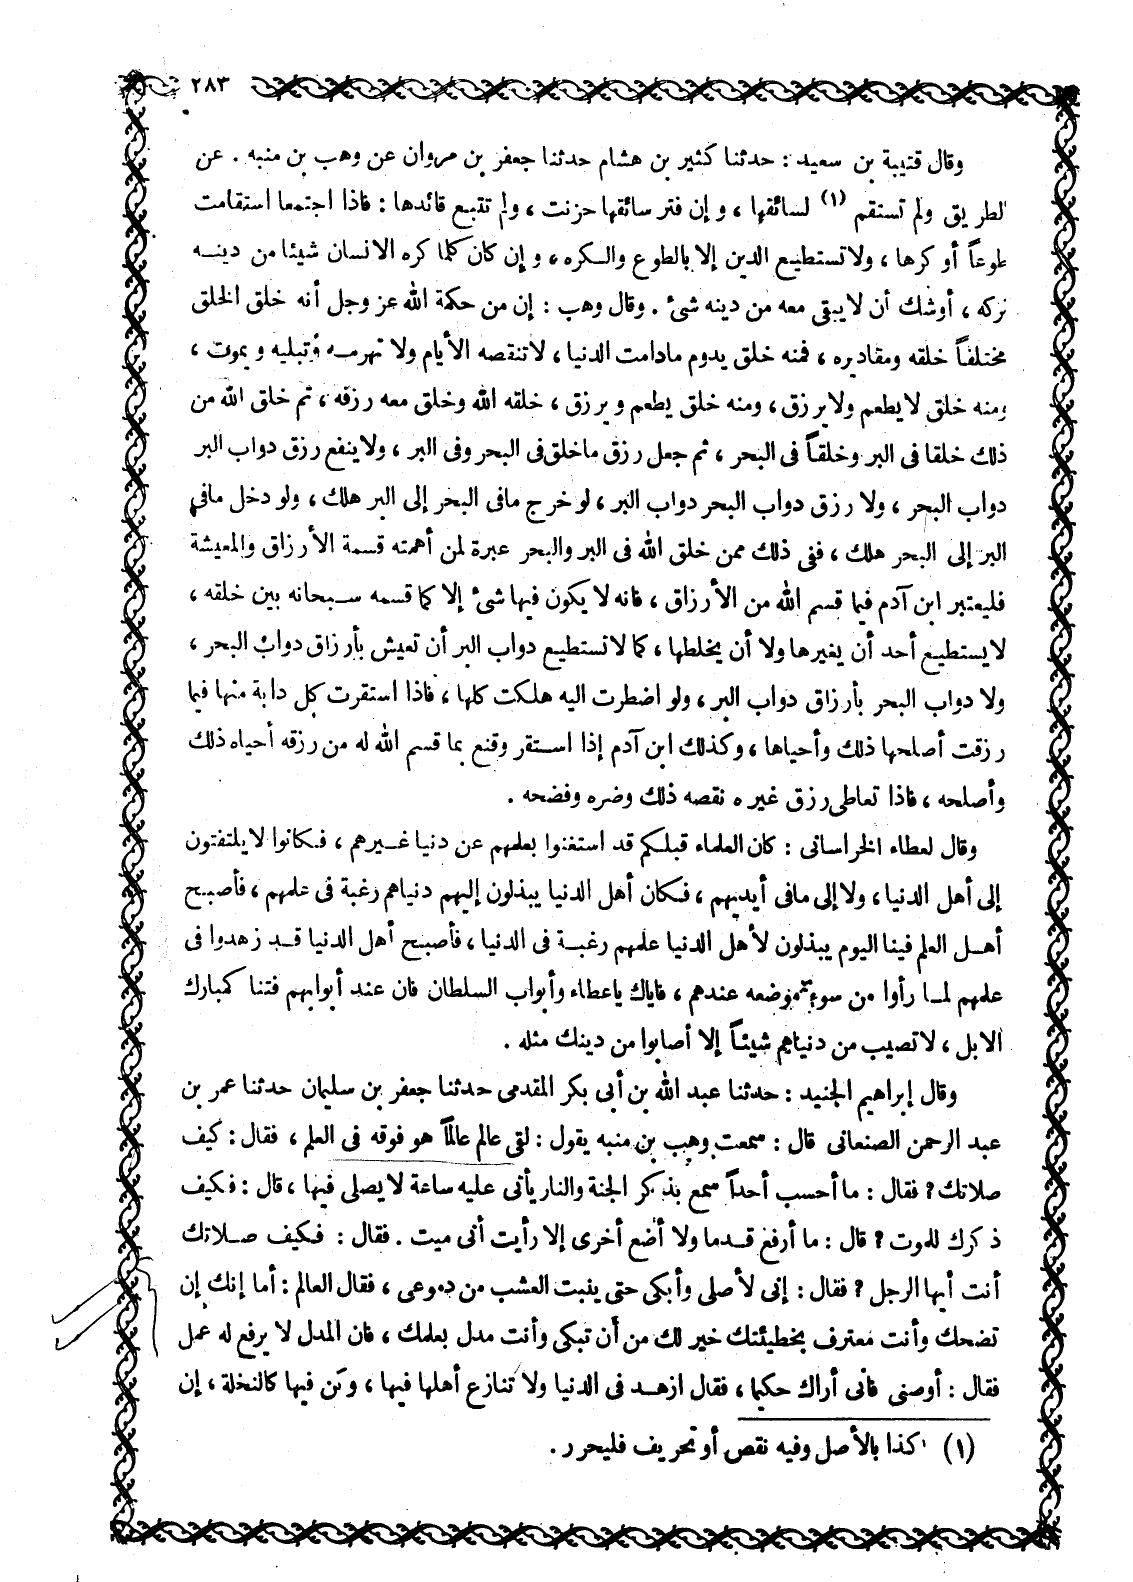 ٢٨٣
وقال قتيبة بن سعيد : حدثنا كثير بن هشام حدثنا جعفر بن مروان عن وهب بن منبه . عن
الطريق ولم تستقم (١) لسائقها ، و إن فتر سائقها حزنت ، ولم تتبع قائدها : فاذا اجتمعا استقامت
طوعاً أو كرها ، ولاتستطيع الدين إلا بالطوع والكره ، و إن كان كلما كره الانسان شيئا من دينه
تركه ، أوشك أن لايبقى معه من دينه شئ . وقال وهب : إن من حكمة الله عز وجل أنه خلق الخلق
مختلفاً خلقه ومقاديره ، فمنه خلق يدوم مادامت الدنيا ، لاتنقصه الأيام ولا تهرمه وتبليه و يموت ،
ومنه خلق لايطعم ولايرزق ، ومنه خلق يطعم و يرزق ، خلقه الله وخلق معه رزقه ، ثم خلق الله من
ذلك خلقا فى البر وخلقاً فى البحر ، ثم جعل رزق ماخلق فى البحر وفى البر ، ولاينفع رزق دواب البر
دواب البحر ، ولا رزق دواب البحر دواب البر ، لو خرج مافى البحر إلى البر هلك ، ولو دخل مافى
البر إلى البحر هلك ، ففى ذلك ممن خلق الله فى البر والبحر عبرة لمن أهمته قسمة الأرزاق والمعيشة
فليعتبر ابن آدم فيما قسم الله من الأرزاق ، فانه لا يكون فيها شئ إلا كما قسمه سبحانه بين خلقه ،
لايستطيع أحد أن يغيرها ولا أن يخلطها ، كما لاتستطيع دواب البر أن تعيش بأرزاق دواب البحر ،
ولا دواب البحر بأرزاق دواب البر ، ولو اضطرت اليه هلكت كلها ، فاذا استقرت كل دابة منها فيما
رزقت أصلحها ذلك وأحياها ، وكذلك ابن آدم إذا استقر وقنع بما قسم الله له من رزقه أحياه ذلك
وأصلحه ، فاذا تعاطى رزق غيره نقصه ذلك وضره وفضحه .
وقال لعطاء الخراسانى : كان العلماء قبلكم قد استغنوا بعلمهم عن دنيا غيرهم ، فكانوا لايلتفتون
إلى أهل الدنيا ، ولا إلى مافى أيديهم ، فكان أهل الدنيا يبذلون إليهم دنياهم رغبة فى علمهم ، فأصبح
أهل العلم فينا اليوم يبذلون لأهل الدنيا علمهم رغبة فى الدنيا ، فأصبح أهل الدنيا قد زهدوا فى
علمهم لما رأوا من سوء موضعه عندهم ، فاياك ياعطاء وأبواب السلطان فان عند أبوابهم فتنا كمبارك
الابل ، لاتصيب من دنياهم شيئاً إلا أصابوا من دينك مثله .
وقال إبراهيم الجنيد : حدثنا عبد الله بن أبى بكر المقدمى حدثنا جعفر بن سليمان حدثنا عمر بن
عبد الرحمن الصنعانى قال : سمعت وهب بن منبه يقول : لقى عالم عالماً هو فوقه فى العلم ، فقال : كيف
صلاتك ? فقال : ما أحسب أحداً سمع بذكر الجنة والنار يأتى عليه ساعة لايصلى فيها ، قال : فكيف
ذكرك للموت ? قال : ما أرفع قدما ولا أضع أخرى إلا رأيت أنى ميت . فقال : فكيف صلاتك
أنت أيها الرجل ? فقال : إنى لأصلى وأبكى حتى ينبت العشب من دموعى ، فقال العالم : أما إنك إن
تضحك وأنت معترف بخطيئتك خير لك من أن تبكى وأنت مدل بعلمك ، فان المدل لا يرفع له عمل
فقال : أوصنى فانى أراك حكيما ، فقال ازهد فى الدنيا ولا تنازع أهلها فيها ، وكن فيها كالنخلة ، إن
(١) كذا بالأصل وفيه نقص أو تحريف فليحرر .